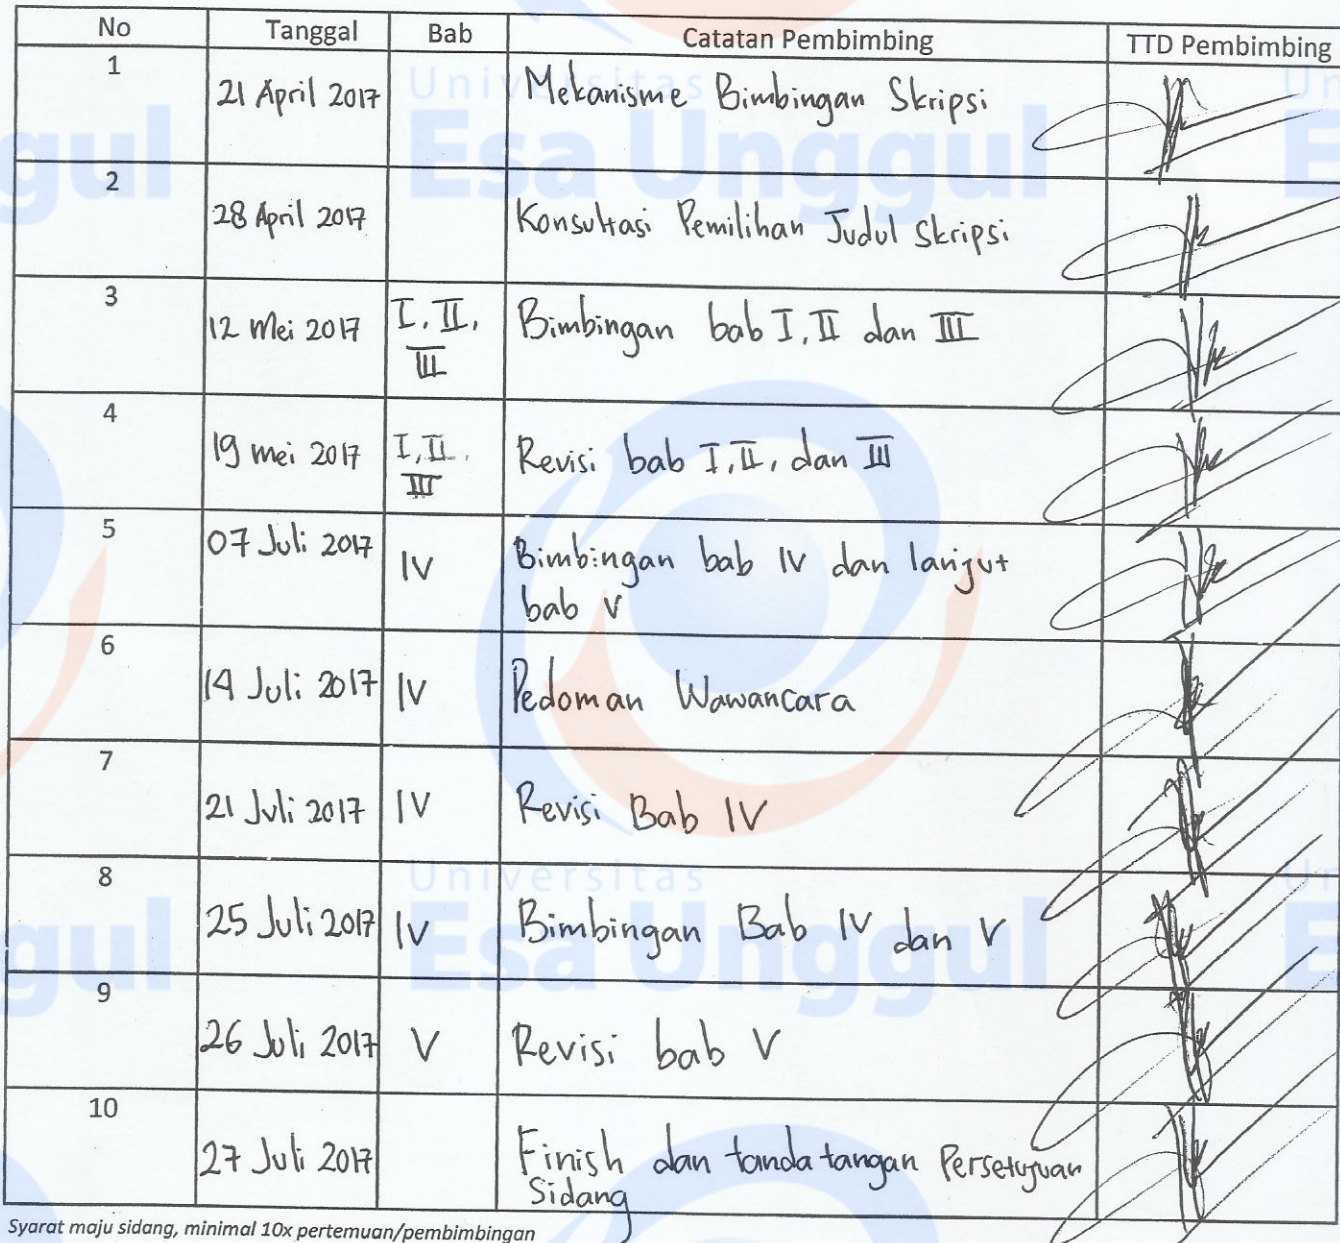 No Tanggal Bab Catatan Pembimbing TTD Pembimbing
1 21 April 2017 Mekanisme Bimbingan Skripsi
2 28 April 2017 Konsultasi Pemilihan Judul Skripsi
3 12 Mei 2017 I, II, Bimbingan bab I, II dan III
III
4 19 mei 2017 I, II, Revisi bab I, II, dan III
III
5 07 Juli 2017 IV Bimbingan bab IV dan lanjut
bab V
6 14 Juli 2017 IV Pedoman Wawancara
7 21 Juli 2017 IV Revisi Bab IV
8 25 Juli 2017 IV Bimbingan Bab IV dan V
9 26 Juli 2017 V Revisi bab V
10 27 Juli 2017 Finish dan tanda tangan Persetujuan
Sidang
Syarat maju sidang, minimal 10x pertemuan/pembimbingan
Universitas
Esa Unggul
Universitas
Esa Unggul